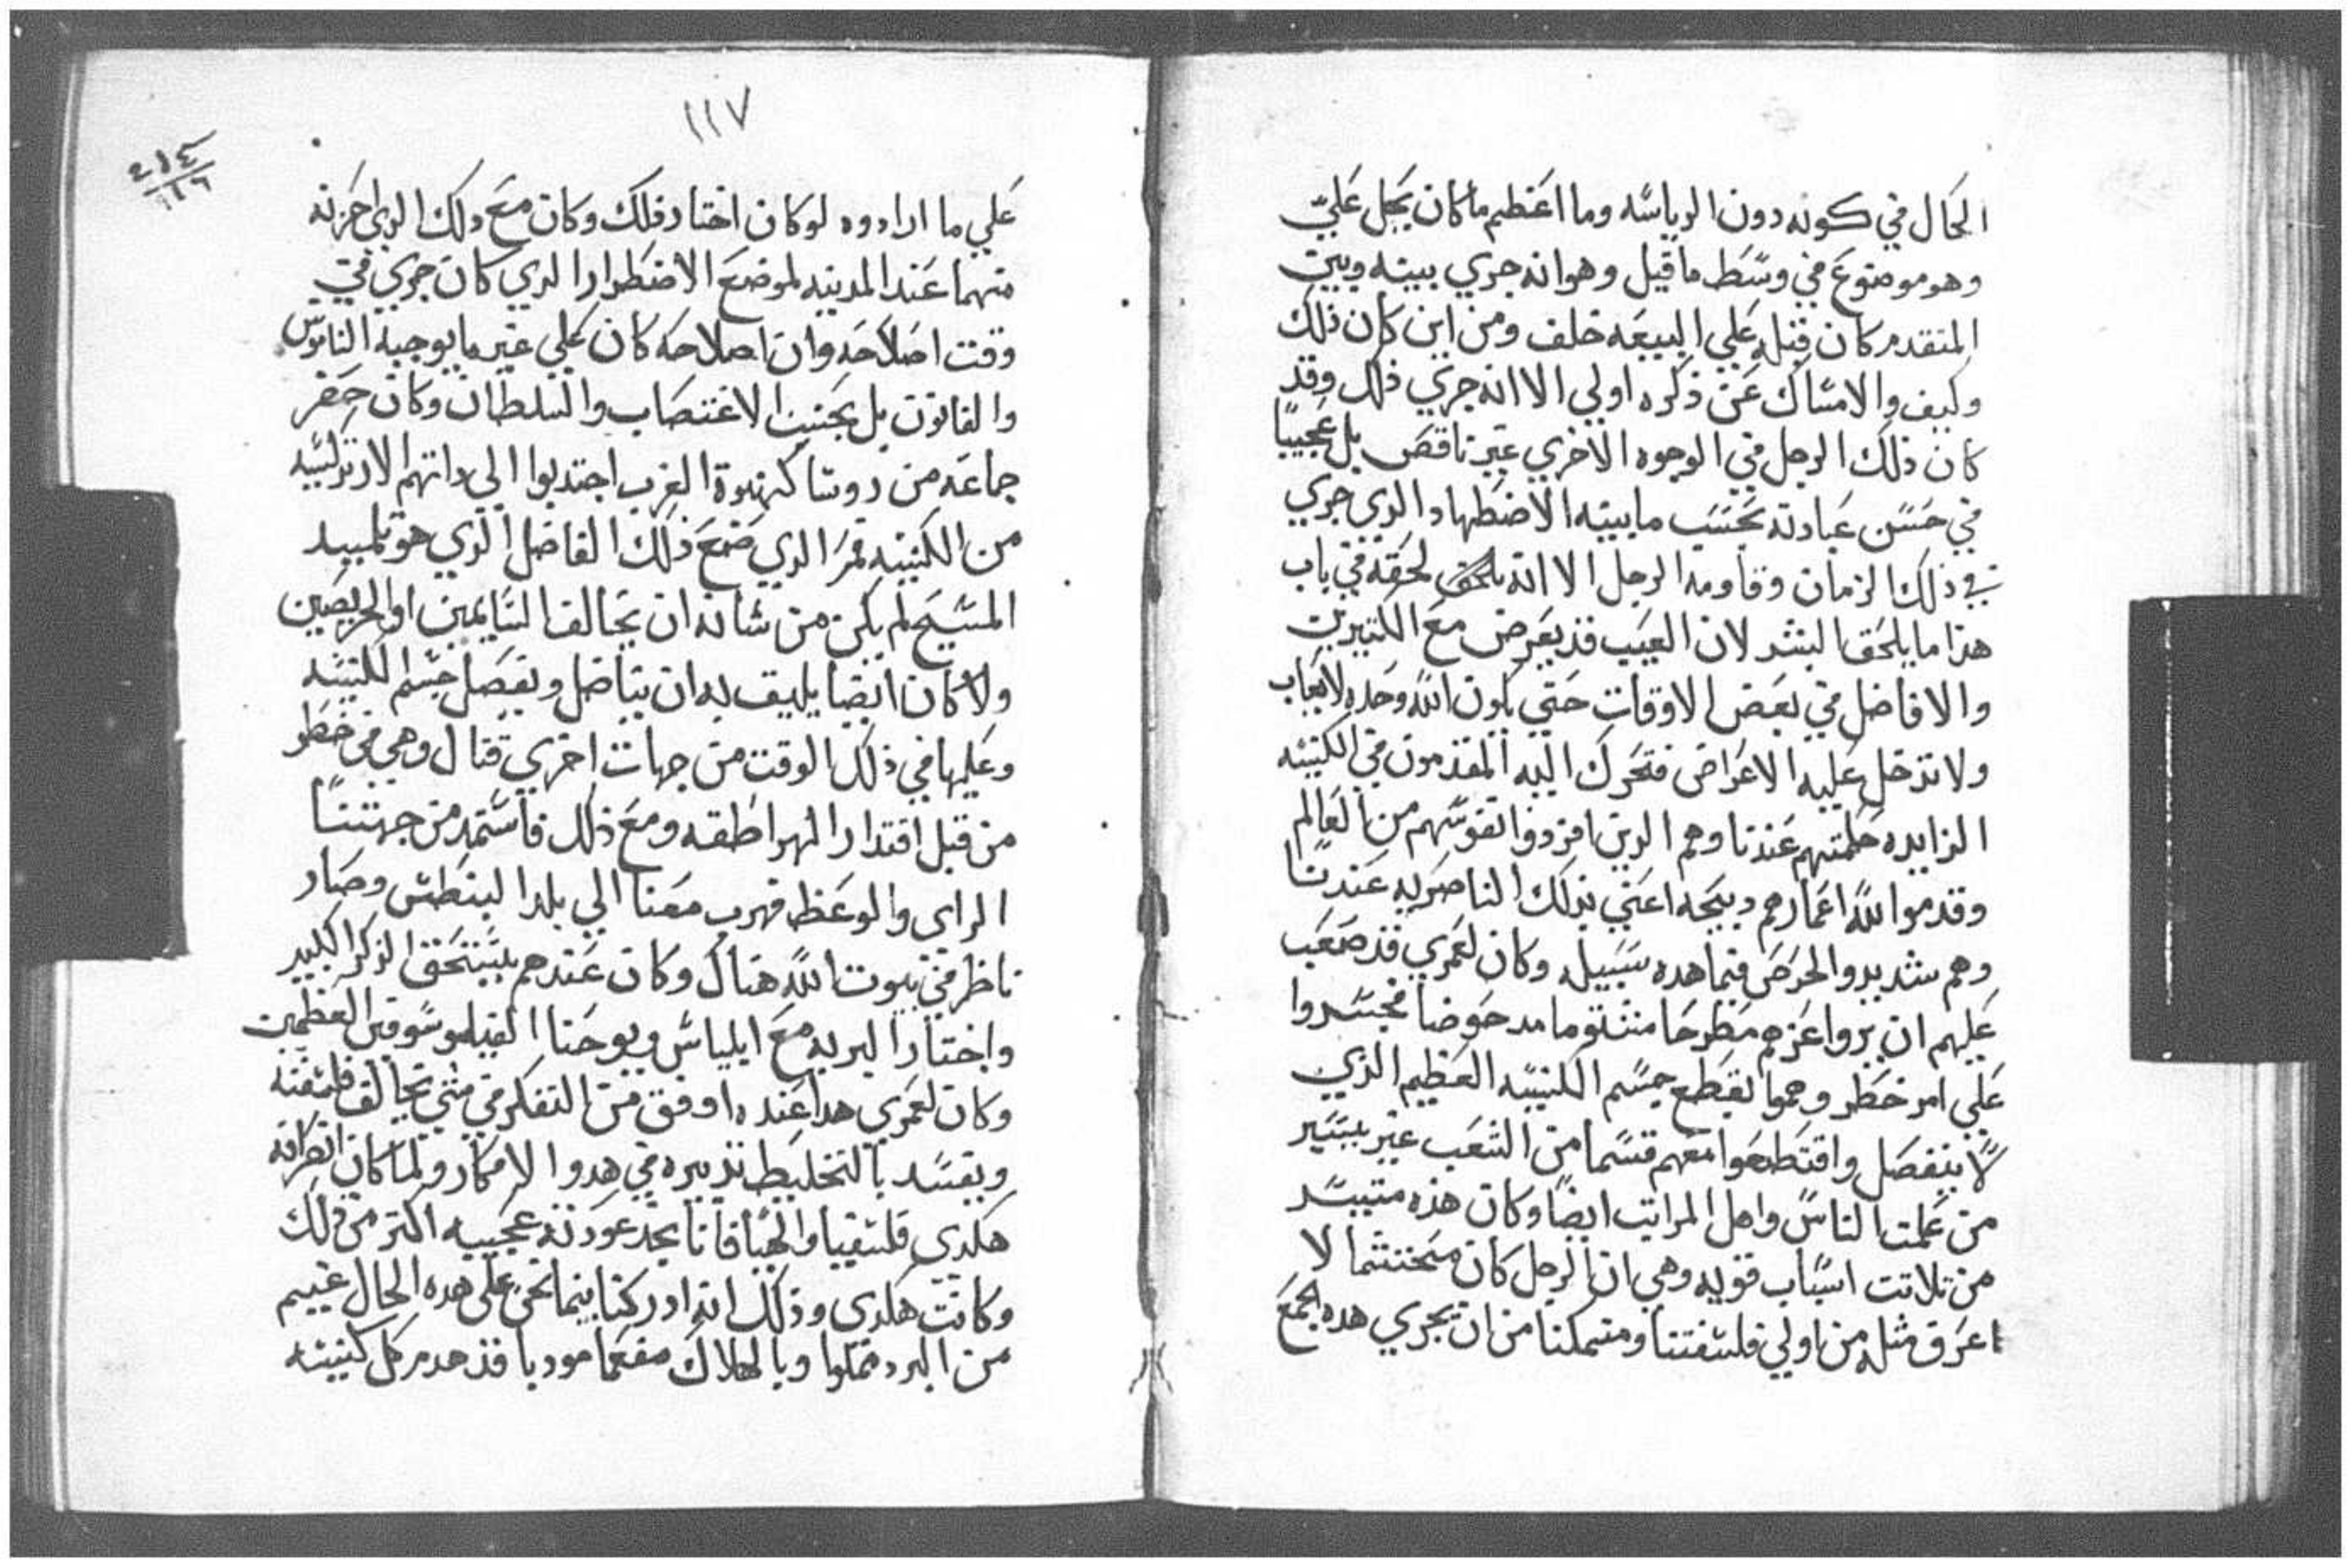 الحال في كونه دون الرياسه وما اعظم ما كان يجل علي
وهو موضوع في وسط ما قيل وهو انه جري بينه وبين
المتقدم كان قبله علي البيعه خلف ومن اين كان ذلك
وكيف والامساك عن ذكره اولي الا انه جري ذلك وقد
كان ذلك الرجل في الوجوه الاخري غير ناقص بل عجيبًا
في حسن عبادته بحسب ما بينه الاضطهاد الدي جري
في ذلك الزمان وقاومه الرجل الا انه لحقه في باب
هذا ما يلحق البشر لان العيب قد يعرض مع الكتيرين
والافاضل في بعض الاوقات حتي يكون الله وحده لا يعاب
ولا تدخل عليه الاعراض فتحرك اليه المقدمون في الكنيسه
الزايده حكمتهم عندنا وهم الدين افردوا نفوسهم من العالم
وقدموا لله اعمارهم دبيحه اعني بذلك الناصريه عندنا
وهم شديدوا الحرص فيما هده سبيله وكان لعمري قد صعب
عليهم ان يروا عزهم مطرحا منتلوما مدحوضا فجسروا
علي امر خطر وهموا بقطع جسم الكنيسه العظيم الذي
لا ينفصل واقتطعوا معهم قسما من الشعب غير يسير
من عامت الناس واهل المراتب ايضًا وكان هذه متيسر
من تلاتت اسباب قويه وهي ان الرجل كان محتشما لا
اعرف مثله من اولي فلسفتنا ومتمكنا من ان يجري هده الجمع
١١٧
علي ما اراده لو كان اختار ذلك وكان مع دلك الدي احزنه
منهما عند المدينه لموضع الاضطرار الدي كان جري في
وقت اصلاحه وان اصلاحه كان علي غير ما يوجبه الناموس
والقانون بل بجنيت الاغتصاب والسلطان وكان حضر
جماعه من روسا كهنوة الغرب اجتدبوا الي داتهم الارتدكسيه
من الكنيسه فمر الدي صنع ذلك الفاضل الذي هو تلميد
المسيح لم يكن من شانه ان يخالف السايمين او الحريصين
ولا كان ايضا يليق به ان يناضل ويفصل جسم الكنيسه
وعليها في ذلك الوقت من جهات اخري قتال وهي في خطر
من قبل اقتدار الهراطقه ومع ذلك فاستمد من جهتنا
الراي والوعظ فهرب معنا الي بلد البنطش وصار
ناظر في بيوت الله هناك وكان عندهم يستحق الذكر الكبير
واختار البريه مع ايلياس ويوحنا العظمين
وكان لعمري هدا عنده اوفق من التفكر في شي يخالف فلسفته
ويفسد بالتخليط تدبيره في هدوا الافكار ولما كان انصرافه
هكدي فلسفيا والهيا فانا نجد عودته عجيبه اكتر من ذلك
وكانت هكدي وذلك انه ادركنا بينما نحن علي هده الحال غييم
من البرد مملوا وبالهلاك مفعما مودبا قد هدم كل كنيسه